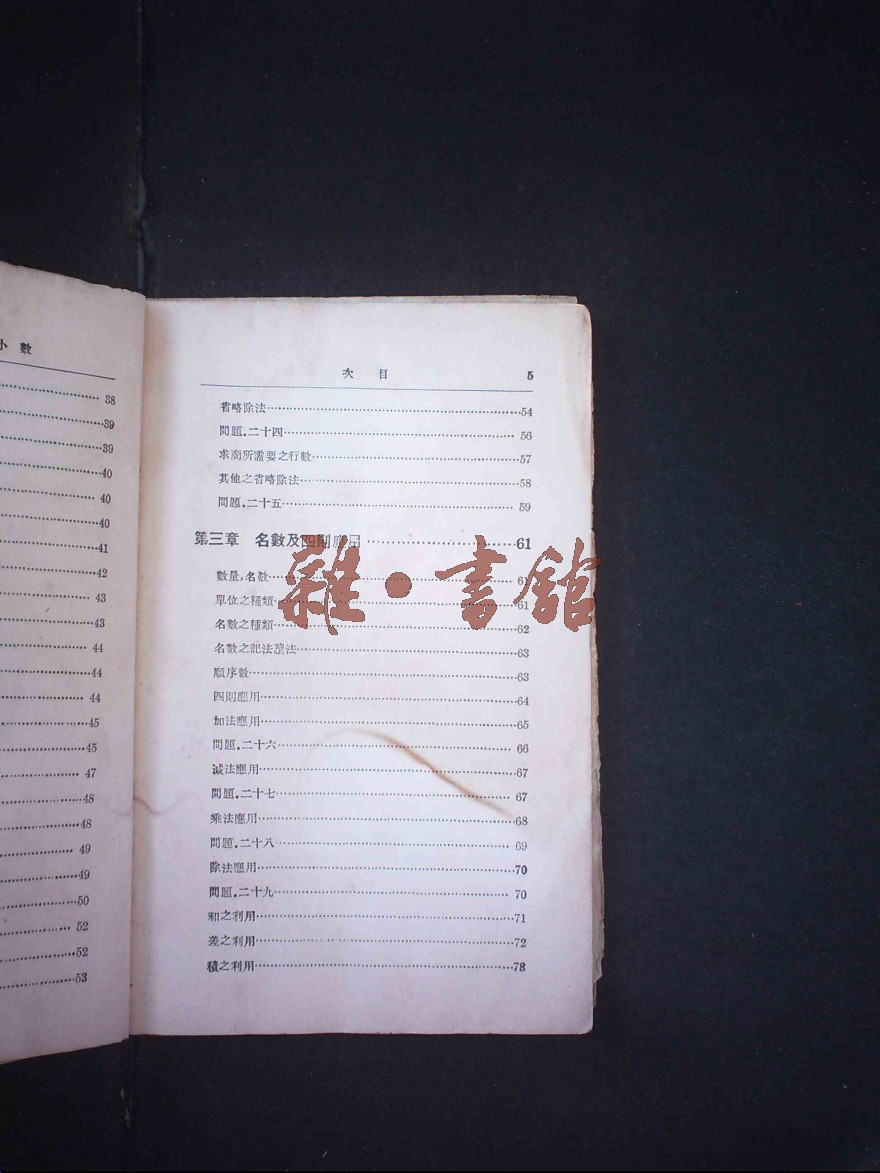 小數
38
39
39
40
40
40
41
42
43
43
44
44
44
45
45
47
48
48
49
49
50
52
52
53
次目 5
省略除法 54
問題.二十四 56
求商所需要之行數 57
其他之省略除法 58
問題.二十五 59
第三章 名數及四則應用 61
數量,名數 61
單位之種類 61
名數之種類 62
名數之記法讀法 63
順序數 63
四則應用 64
加法應用 65
問題.二十六 66
減法應用 67
問題.二十七 67
乘法應用 68
問題.二十八 69
除法應用 70
問題.二十九 70
和之利用 71
差之利用 72
積之利用 78
雜·書館